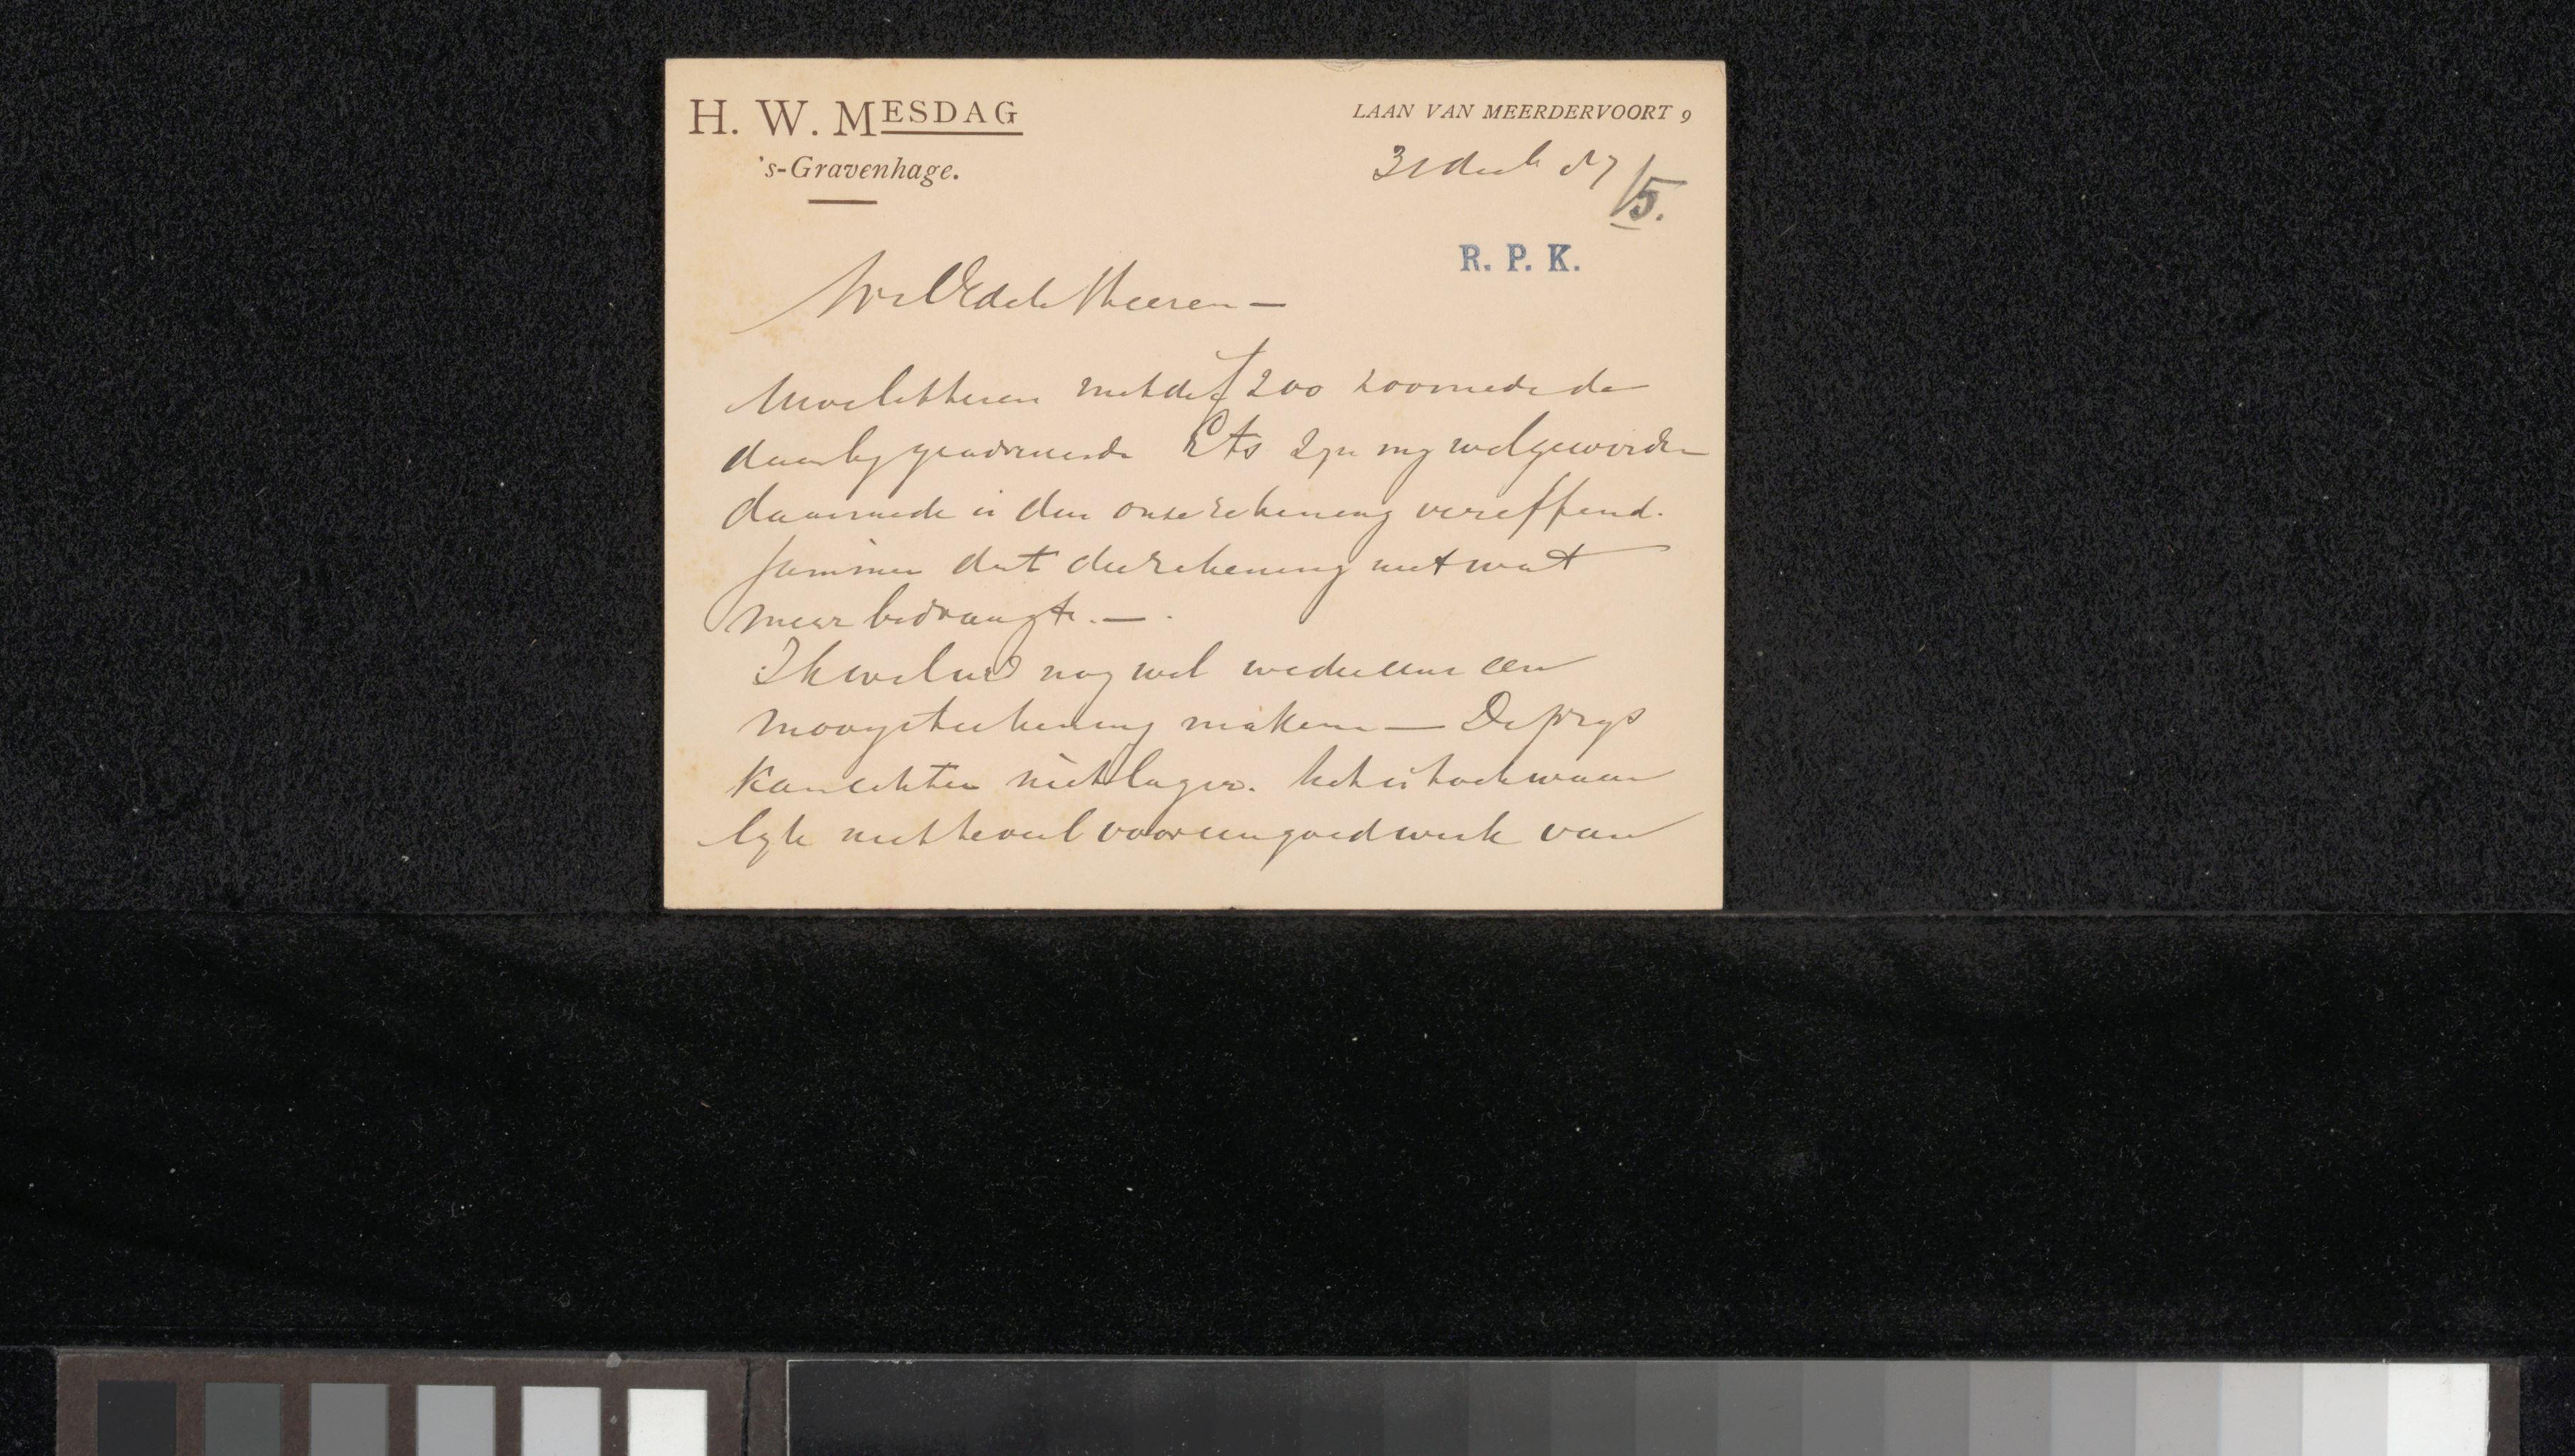 H. W. MESDAG
LAAN VAN MEERDERVOORT 9
's-Gravenhage.
31 Dec 87
15.
R. P. K.
WelEdele Heeren —
Uwe letteren met de f 200 zoomede de
daarby gevoegde Ets zyn my wel geworden
daarmede is dan onze rekening vereffend.
Jammer dat die rekening niet wat
meer bedraagt. —
Ik wil nog wel weder eens een
mooye teekening maken — De prys
kan echter niet lager. het is toch waar
lyk niet te veel voor een goed werk van